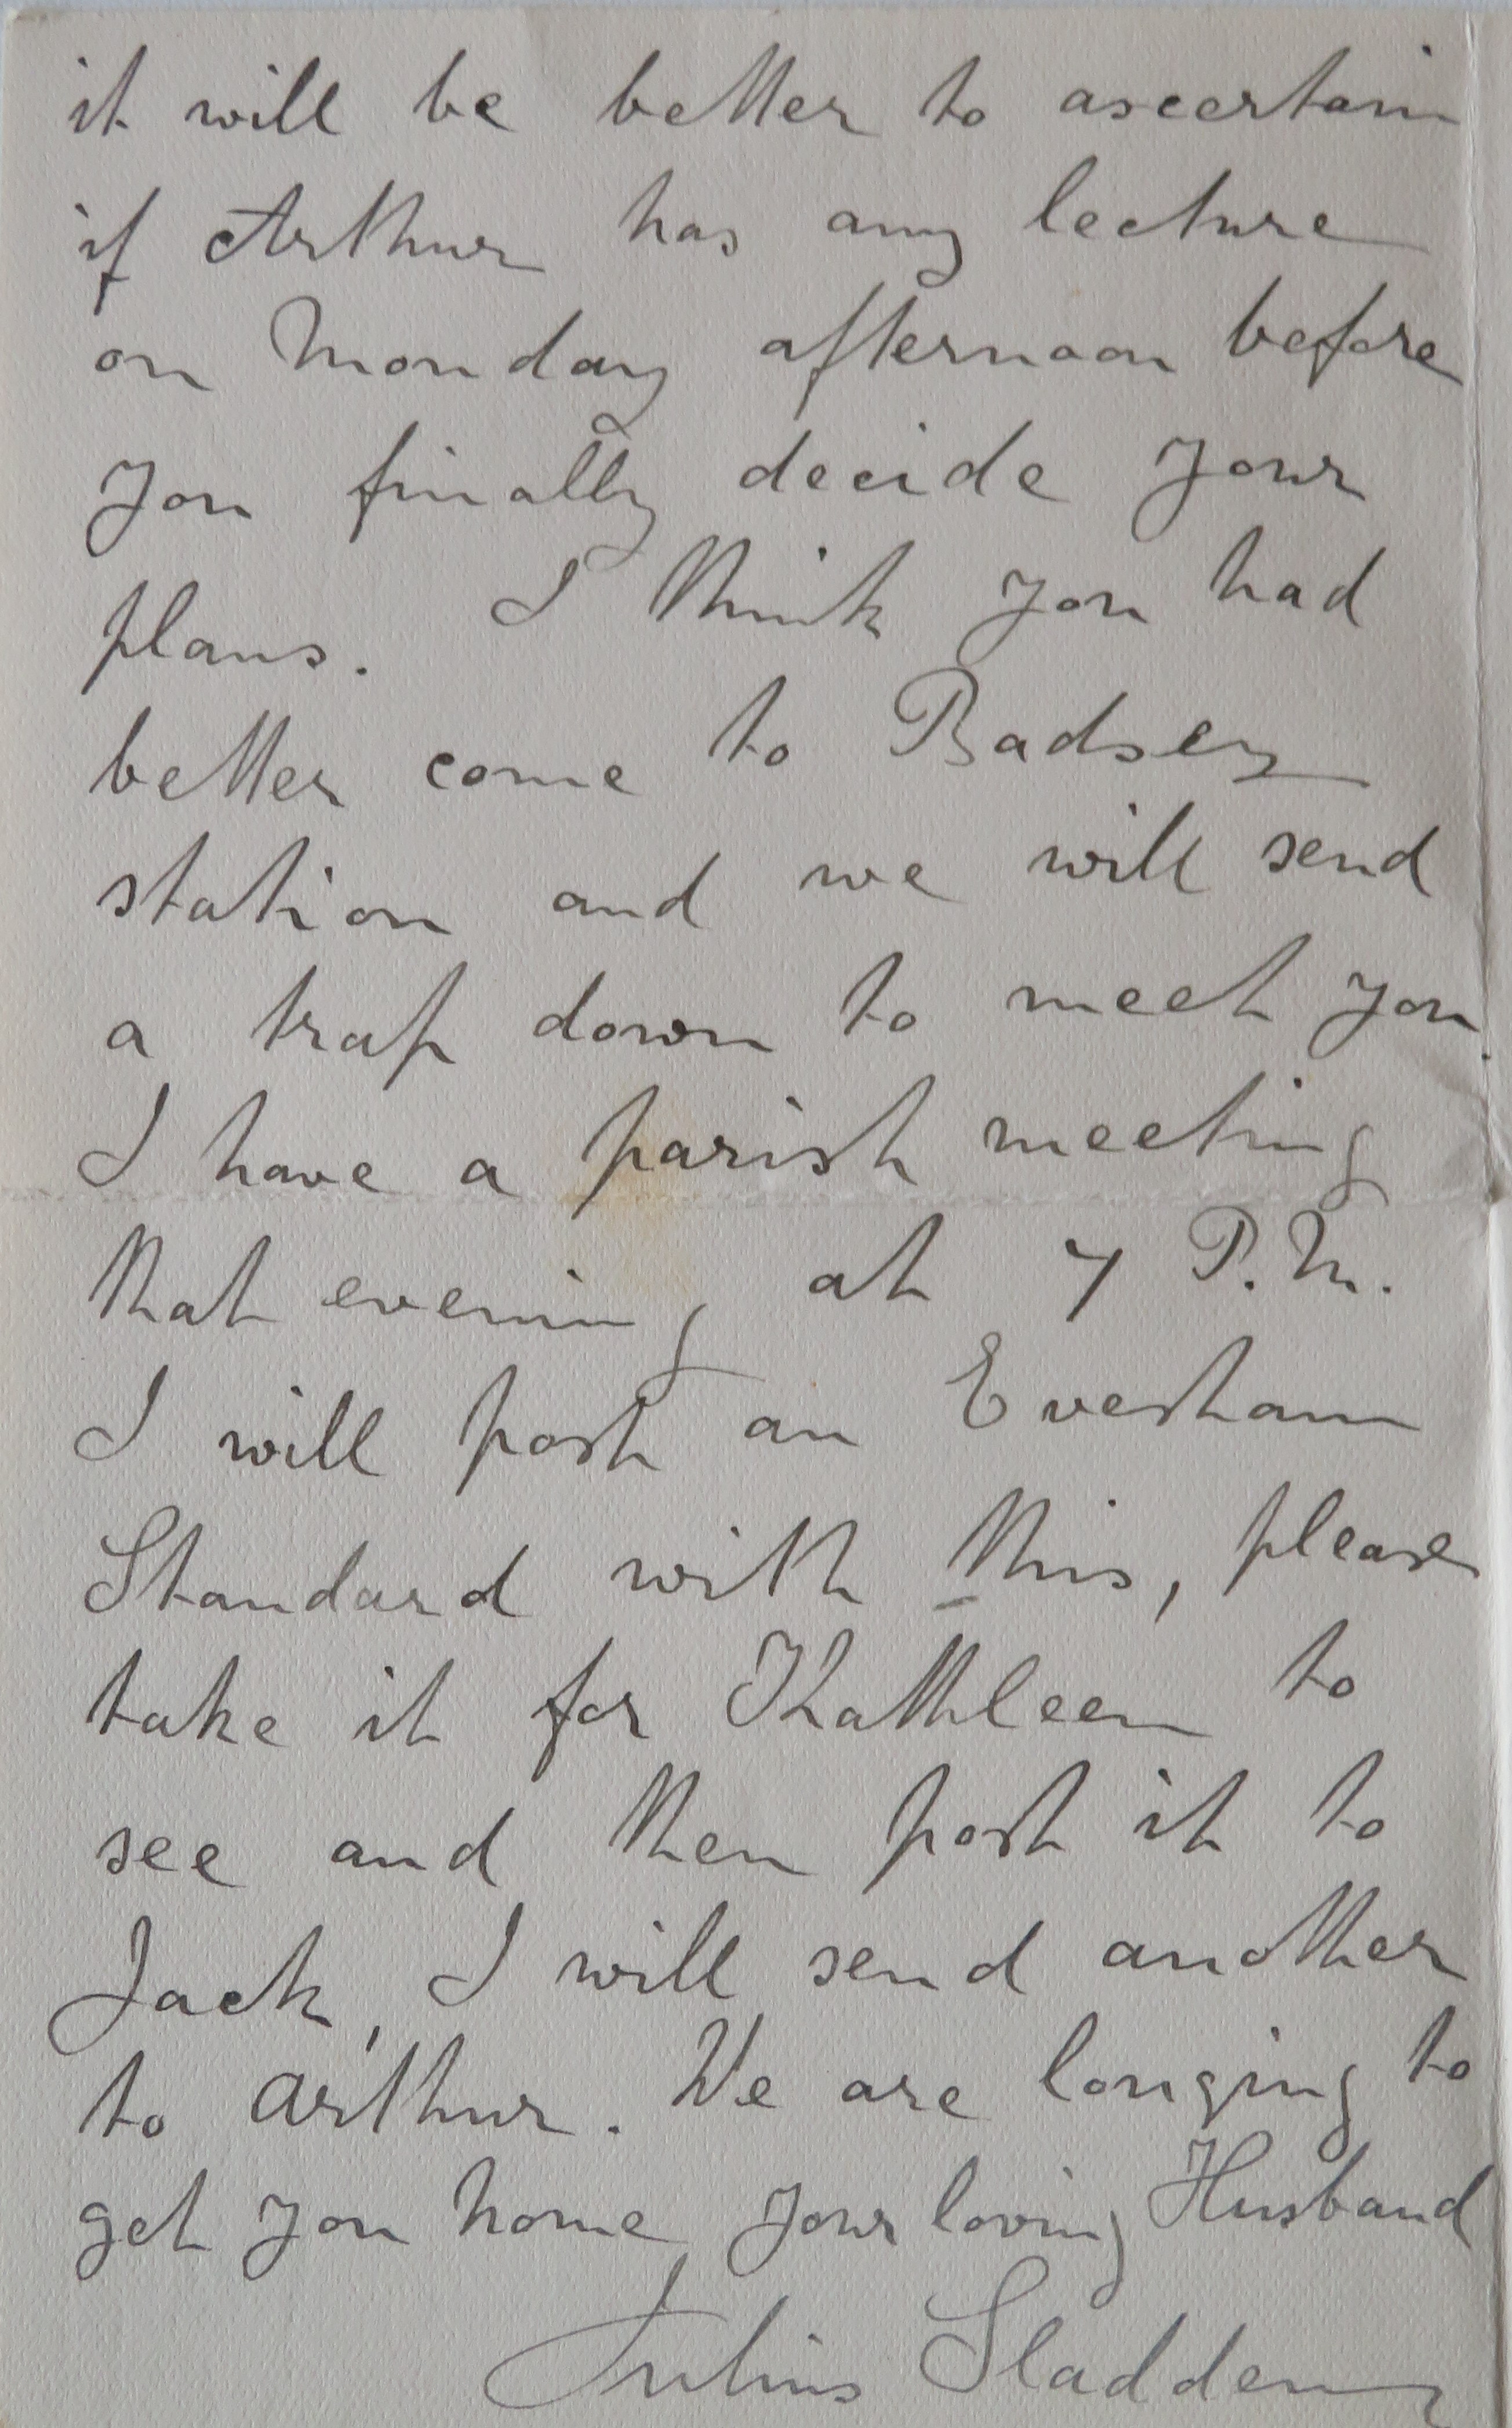 it will be better to ascertain
if Arthur has any lecture
on Monday afternoon before
you finally decide your
plans. I think you had
better come to Badsey
station and we will send
a trap down to meet you.
I have a parish meeting
that evening at 7 P.M.
I will post an Evesham
Standard with this, please
take it for Kathleen to
see and then post it to
Jack, I will send another
to Arthur. We are longing to
get you home your loving Husband
Julius Sladden